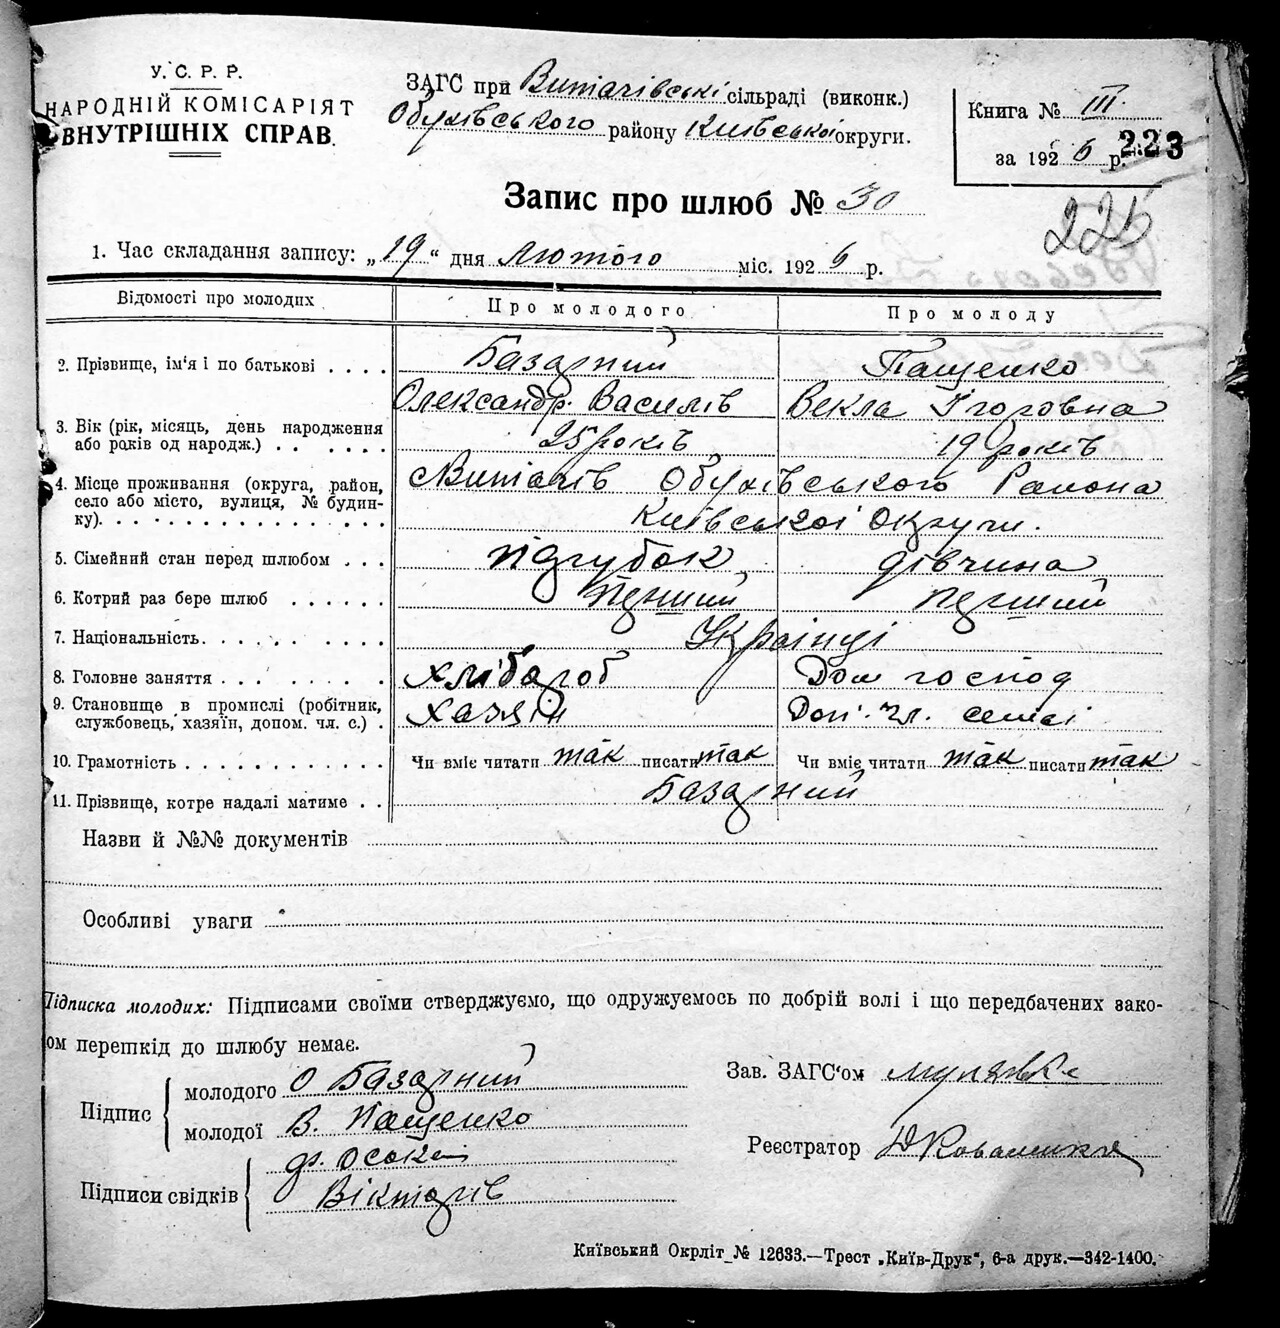 У. С. Р. Р.
НАРОДНІЙ КОМІСАРІЯТ
ВНУТРІШНІХ СПРАВ.
ЗАГС при Витачівські сільраді (виконк.)
Обухівського району Київської округи.
Книга № III.
за 1926 р.
223
226
Запис про шлюб № 30
1. Час складання запису: „19“ дня Лютого міс. 1926 р.
Відомості про молодих Про молодого Про молоду
2. Прізвище, ім'я і по батькові . . . . Базарний Пащенко
Олександр. Василів Векла Ігоровна
3. Вік (рік, місяць, день народження
або раків од народж.) . . . . . . 25 років 19 років
4. Місце проживання (округа, район,
село або місто, вулиця, № будин-
ку). . . . . . . . . . . . . . . .
Витачів Обухівського Района
Київської Округи.
5. Сімейний стан перед шлюбом . . . підрубок дівчина
6. Котрий раз бере шлюб . . . . . . перший
7. Національність. . . . . . . . . . Українці
8. Головне заняття . . . . . . . . . хлібороб Дом господ
9. Становище в промислі (робітник,
службовець, хазяїн, допом. чл. с.) . Хазяїн Доп. чл. семєі
10. Грамотність . . . . . . . . . . . . Чи вміє читати так писати так Чи вміє читати так писати так
11. Прізвище, котре надалі матиме . . Базарний
Назви й №№ документів
Особливі уваги
Підписка молодих: Підписами своїми стверджуємо, що одружуємось по добрій волі і що передбачених зако-
ом перешкід до шлюбу немає.
Підпис
молодого О Базарний
молодої В. Пащенко
Підписи свідків
Зав. ЗАГС'ом
Реєстратор Коваленко
Київський Окрліт № 12633.—Трест „Київ-Друк“, 6-а друк.—342-1400.